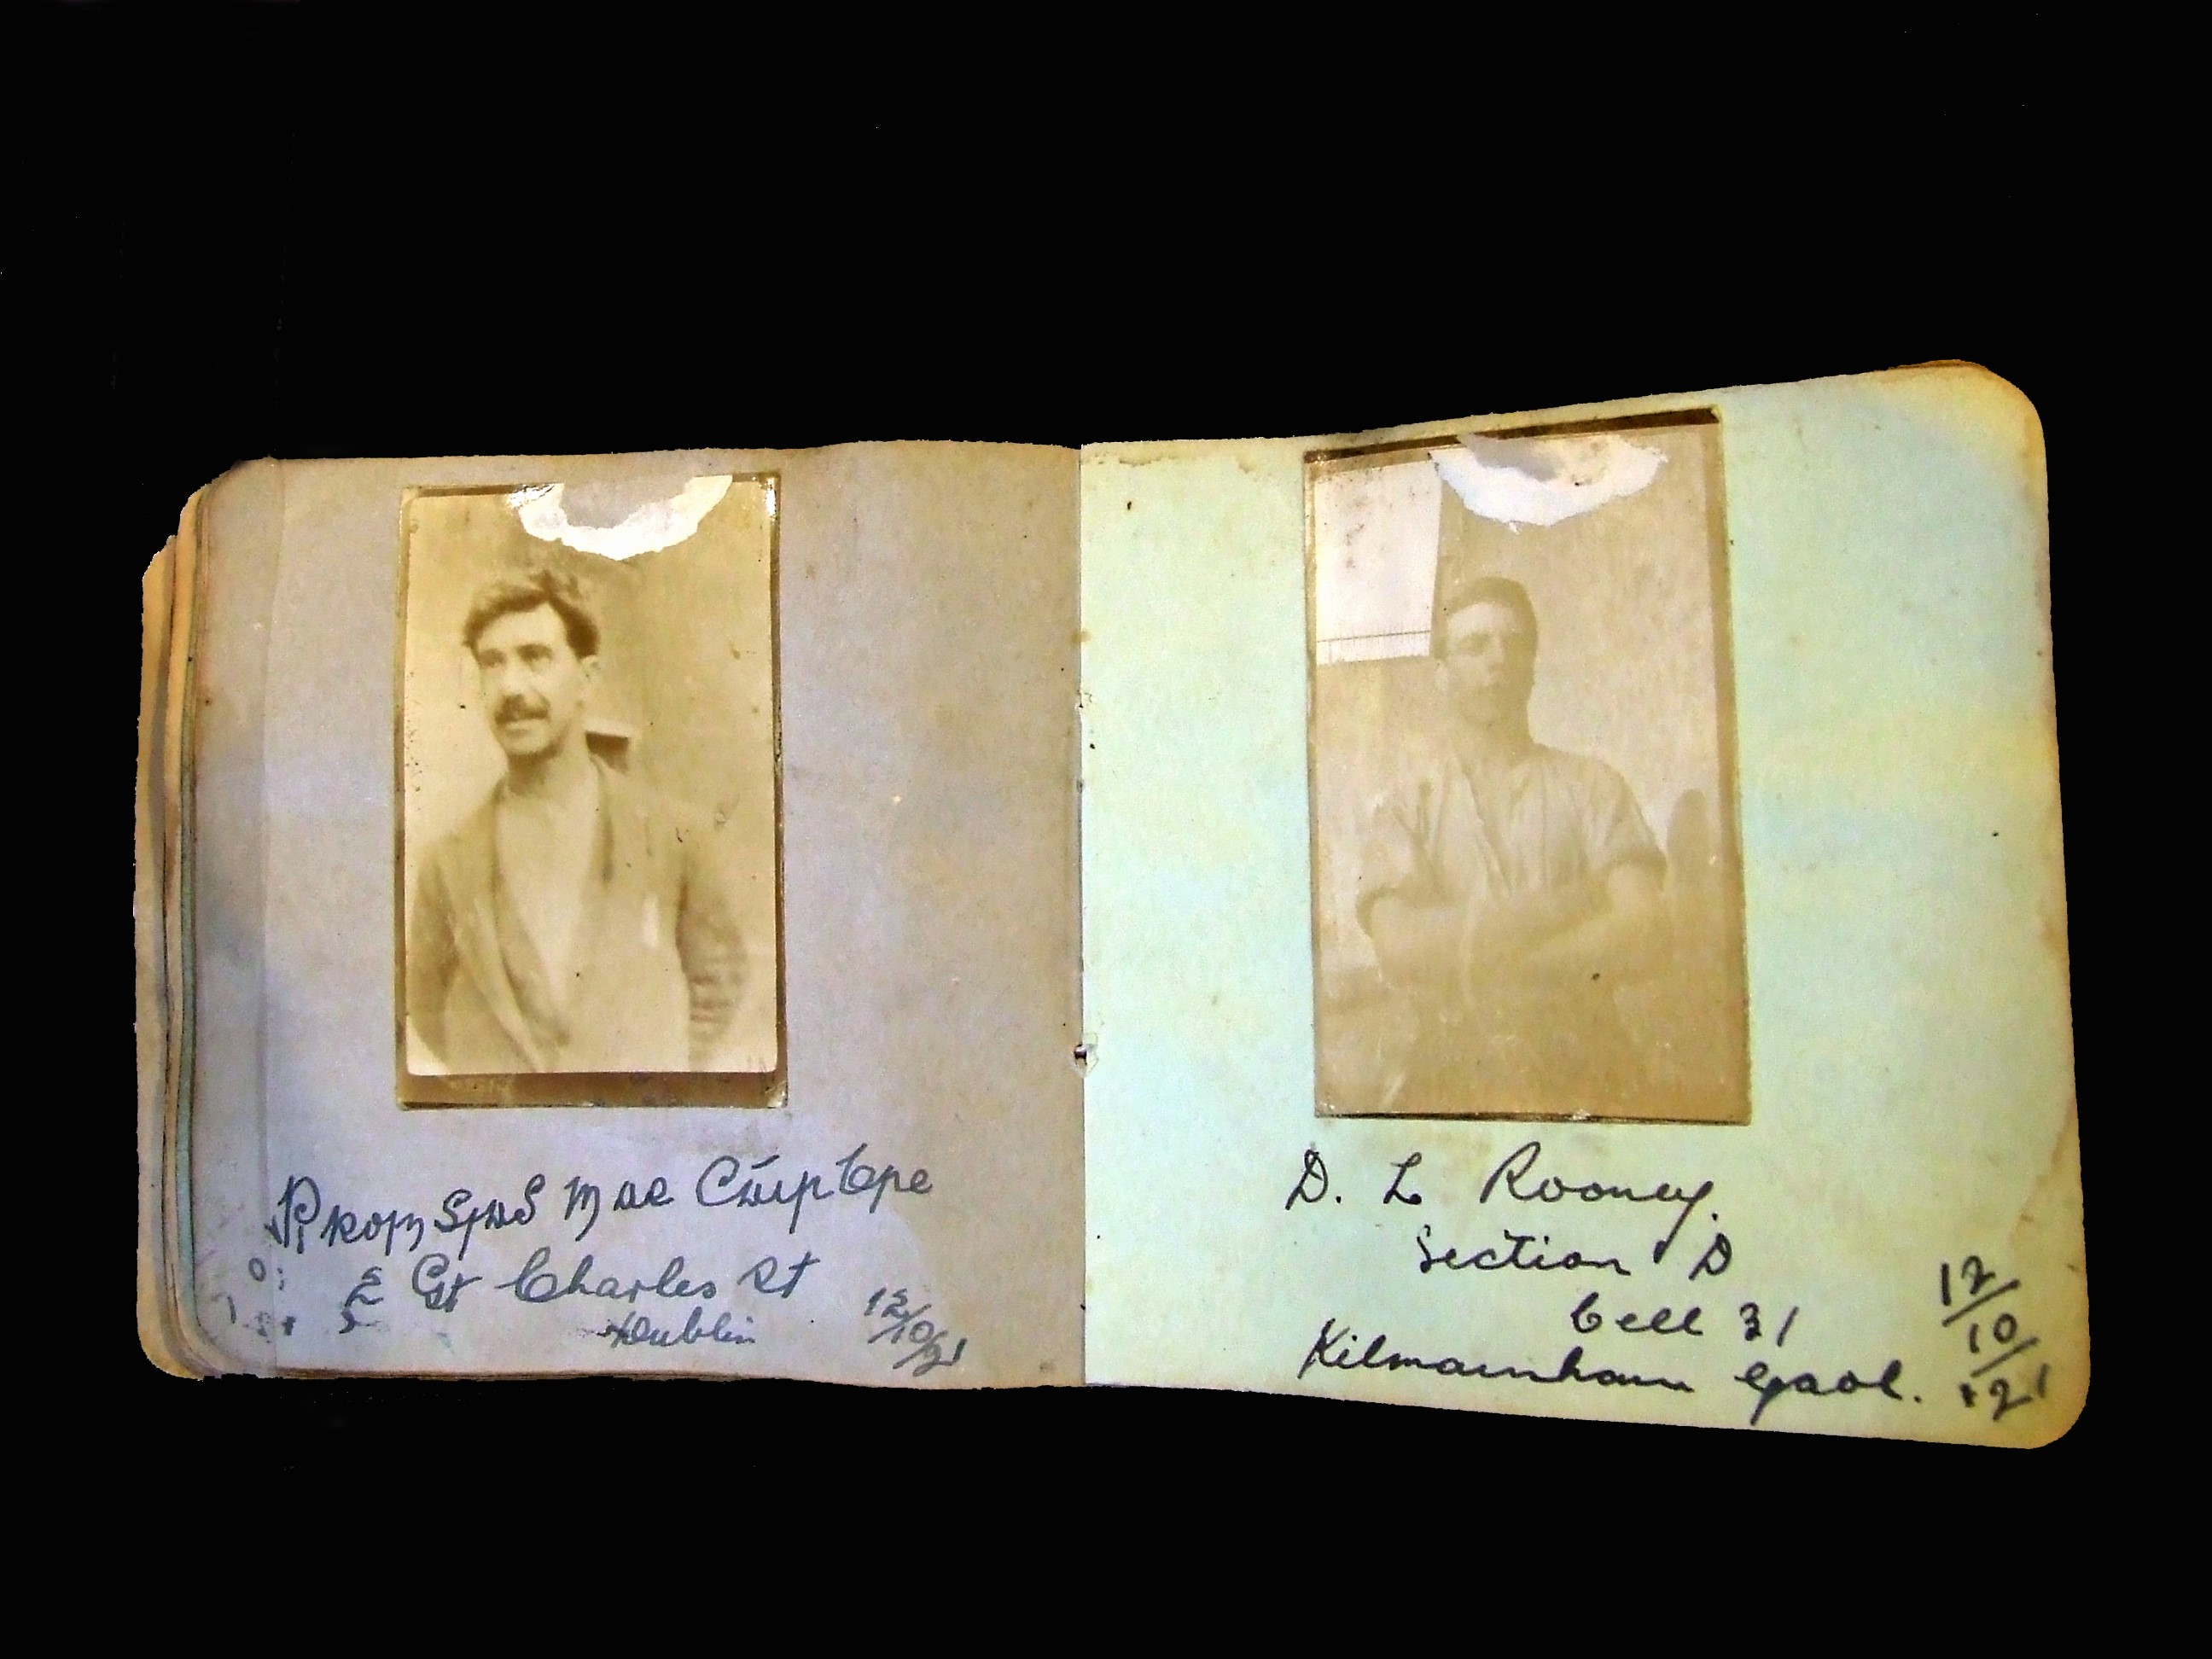 Mac
Gt Charles St
Dublin
12/10/21
D. L Rooney.
Section D
Cell 31
Kilmainham Gaol.
12/10/21